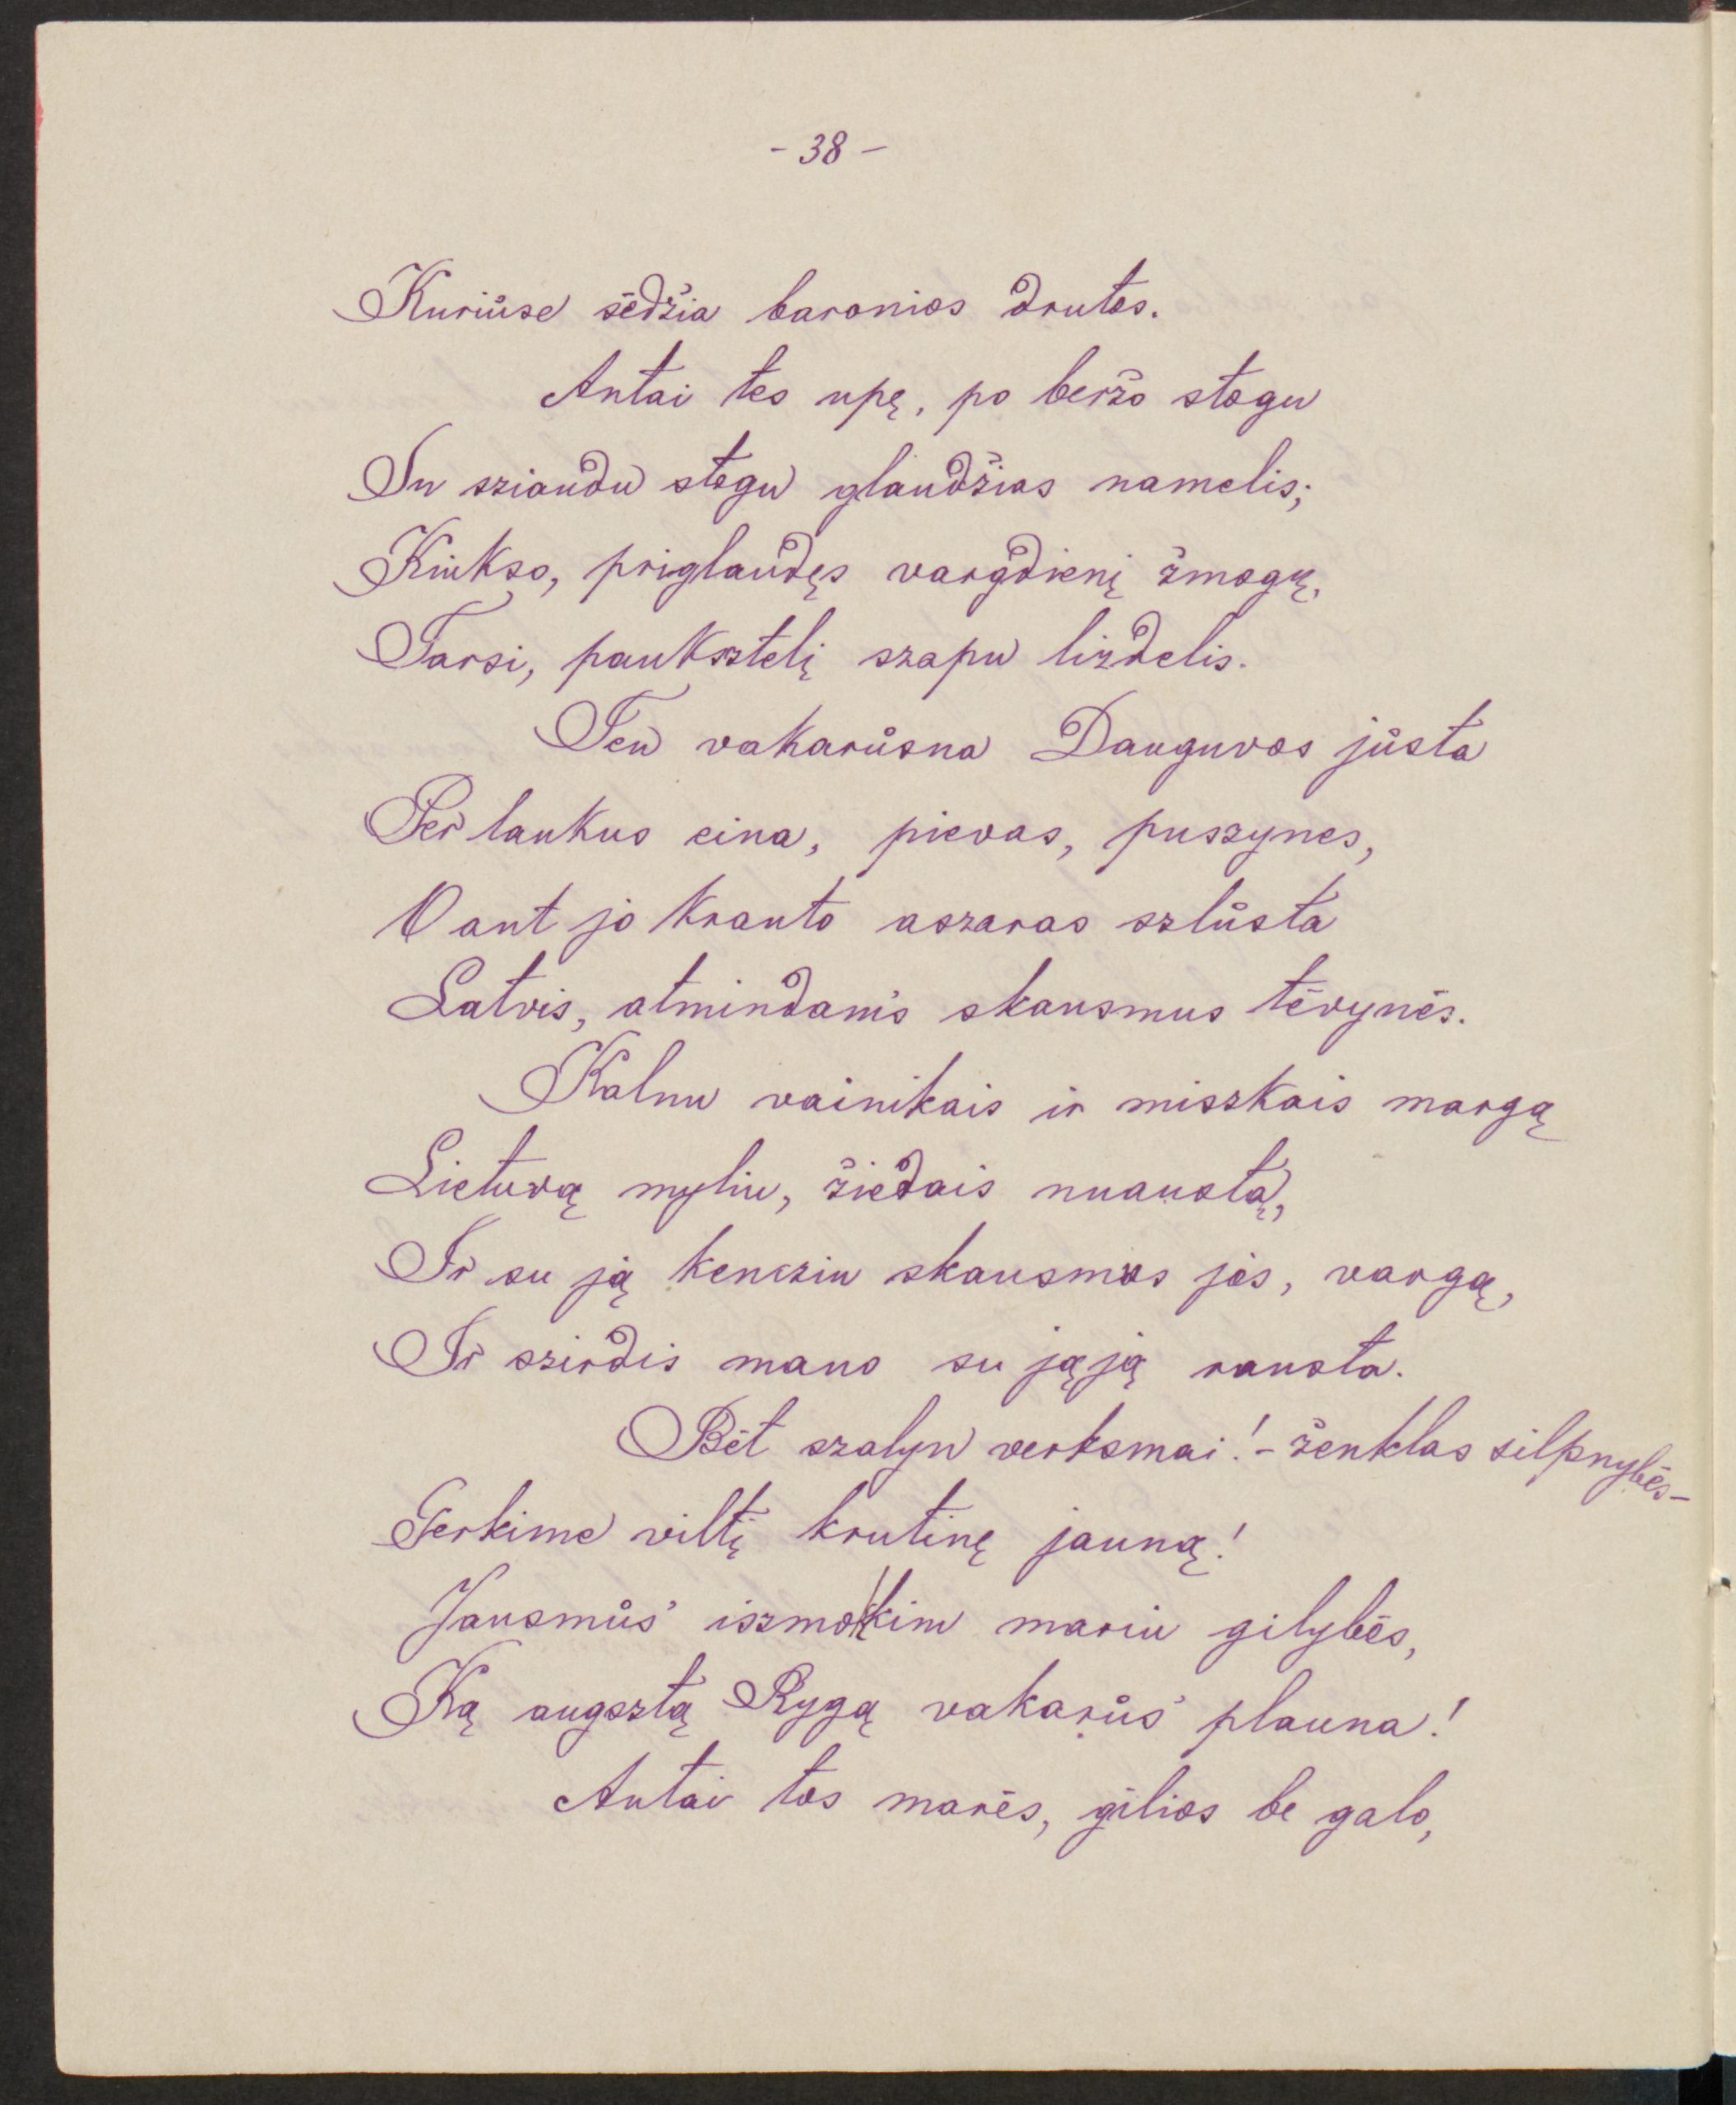 - 38 -
Kuriůse sėdžia baronios drutos.
Antai tes upę, po beržo stogu
Su sziaudu stogu glaudžias namelis;
Kiukso, priglaudęs vargdienį žmogų,
Tarsi, pauksztelį szapu lizdelis.
Ten vakarůsna Dauguvos jůsta
Per laukus eina, pievas, puszynes,
O ant jo kranto aszaras szlůsta
Latvis, atmindams skausmus tėvynės.
Kalnu vainikais ir misskais margą
Lietuvą myliu, žiedais nuaustą,
Ir su ją kencziu skausmus jos, vargą,
Ir szirdis mano su jąją rausta.
Bėt szalyn verksmai! - ženklas silpnybės -
Gerkime viltį krutinę jauną!
Jausmůs iszmokim mariu gilybės,
Ką augsztą Rygą vakarůs plauna!
Antai tos marės, gilios be galo,